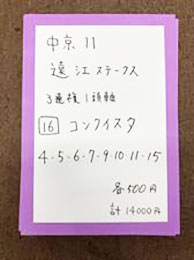 中京11
遠江ステークス
3連複1頭軸
16 コンクイスタ
4・5・6・7・9・10・11・15
各500円
計14000円